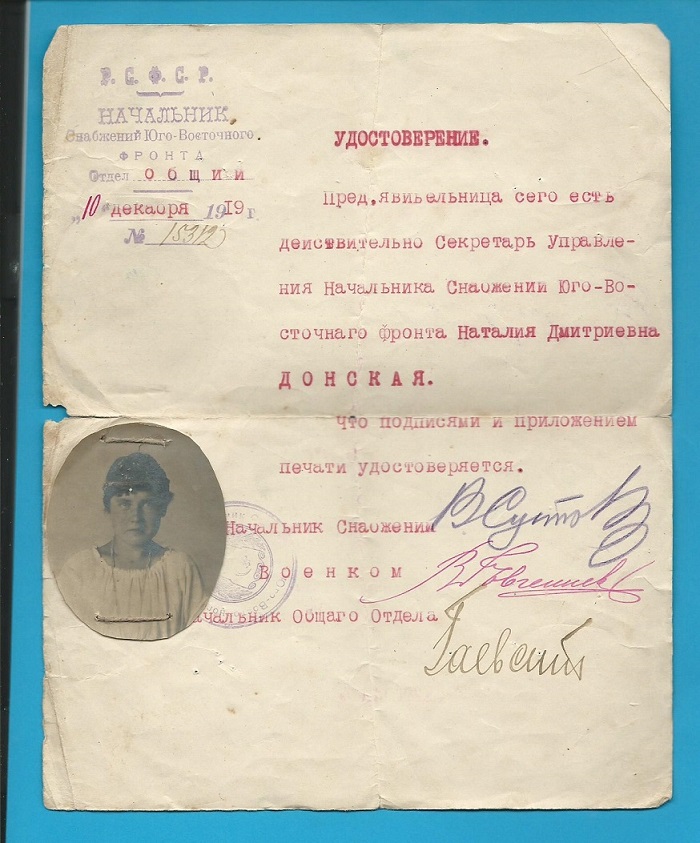 Р. С. Ф. С. Р.
НАЧАЛЬНИК
Снабжений Юго-Восточного
ФРОНТА
Отдел Общий
„10" декабря 1919 г.
№ 15312
УДОСТОВЕРЕНИЕ.
Пред,явивельница сего есть
действительно Секретарь Управле-
ния Начальника Снабжений Юго-Во-
сточнаго фронта Наталия Дмитриевна
ДОНСКАЯ.
Что подписями и приложением
печати удостоверяется.
Начальник Снабжений
Военком
Начальник Общаго Отдела
Гаевский